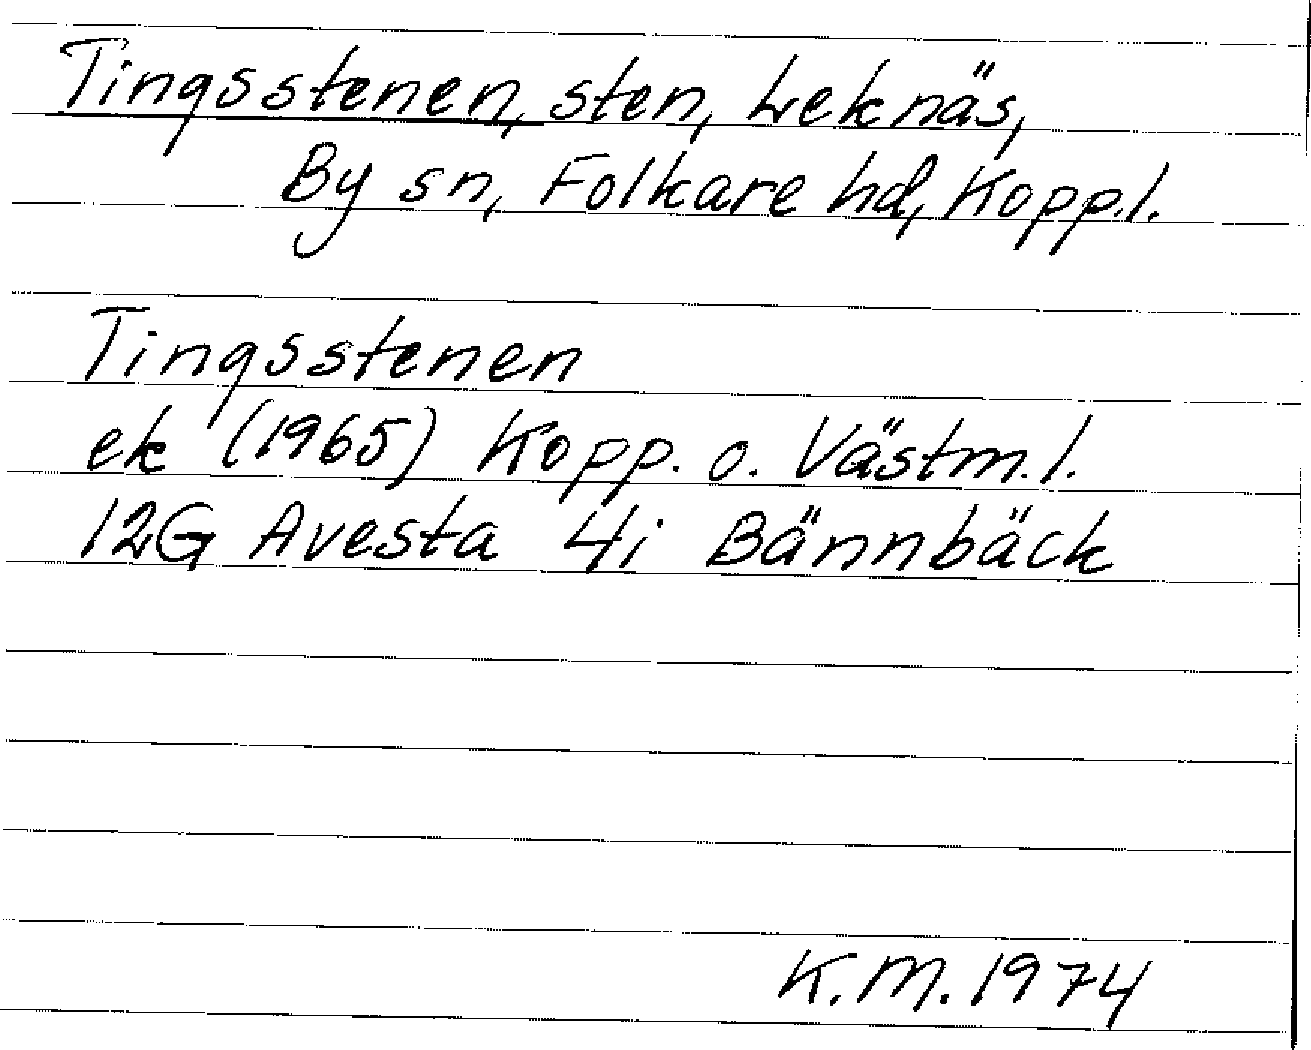 Tingsstenen, sten, Leknäs,
By sn, Folkare hd, Kopp.l.
Tingsstenen
ek (1965) Kopp. o. Västm.l.
12G Avesta 4i Bännbäck
K.M. 1974